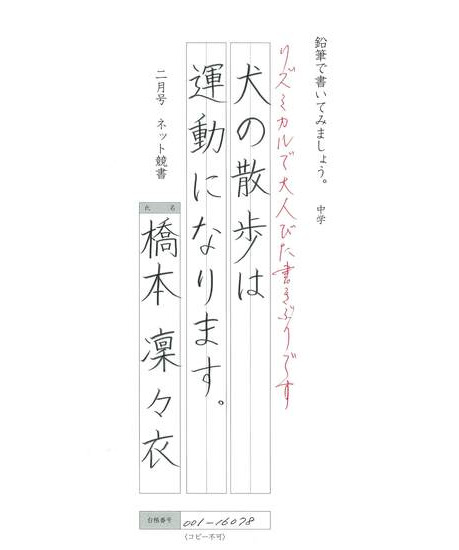 鉛筆で書いてみましょう。 中学
リズミカルで大人びた書きぶりです
犬の散歩は
運動になります。
二月号 ネット競書
氏名
橋本凜々衣
台帳番号 001-16078
(コピー不可)